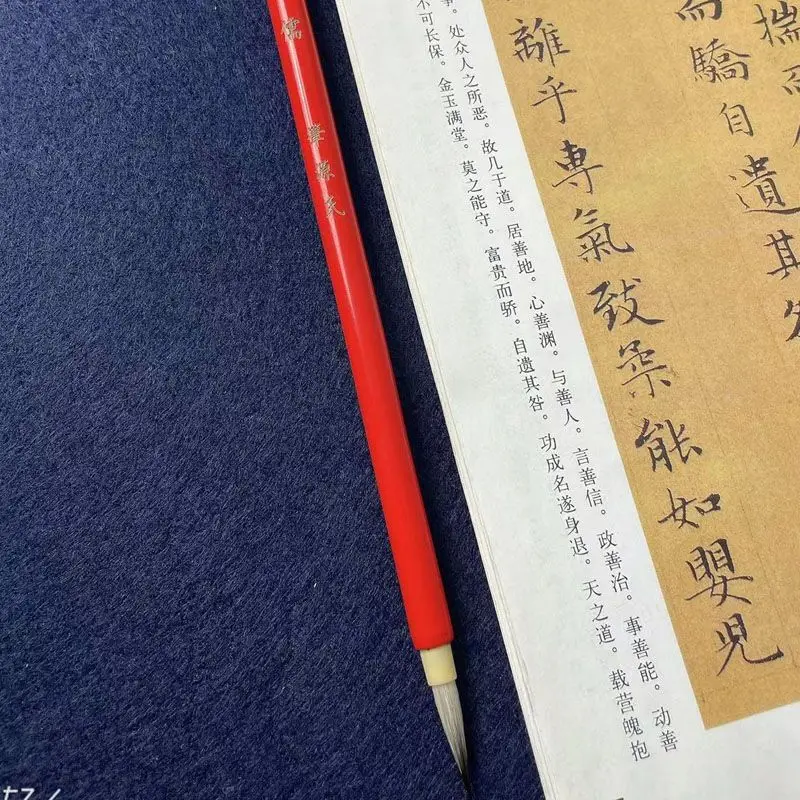 揣而
而驕自遺其咎
離乎専氣致柔能如嬰兒
处众人之所恶。故几于道。居善地。心善渊。与善人。言善信。政善治。事善能。动善
不可长保。金玉满堂。莫之能守。富贵而骄。自遗其咎。功成名遂身退。天之道。载营魄抱
儒 華源氏